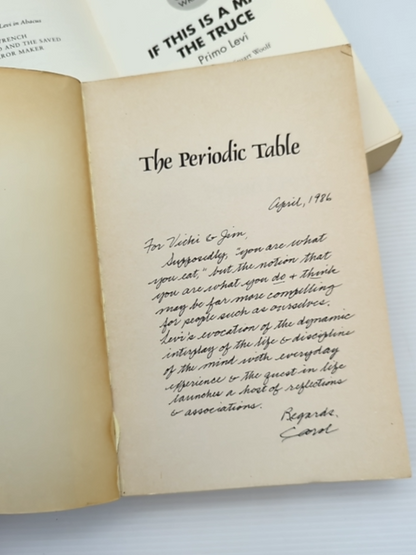 Levi in Abacus
TRENCH
D AND THE SAVED
ROR MAKER
IF THIS IS A MA
THE TRUCE
Primo Levi
Woolf
The Periodic Table
April, 1986
For Vicki & Jim,
Supposedly, "you are what
you eat," but the notion that
you are what you do & think
may be far more compelling
for people such as ourselves.
Levi's evocation of the dynamic
interplay of the life & discipline
of the mind with everyday
experience & the quest in life
launches a host of reflections
& associations.
Regards,
Carol